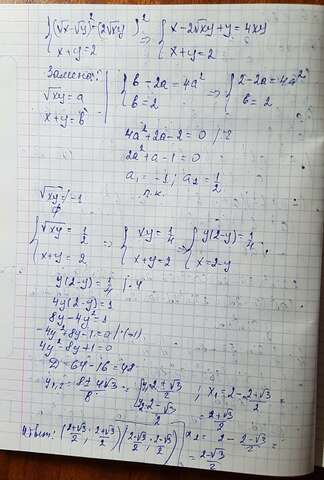 {(√x-√y)²=(2√xy)² => {x-2√xy+y=4xy
x+y=2 x+y=2
Замена:
√xy=a
x+y=b
{b-2a=4a² => {2-2a=4a²
b=2 b=2
4a²+2a-2=0 /:2
2a²+a-1=0
a₁=-1; a₂=1/2
п.к.
√xy≠-1
{√xy=1/2 => {xy=1/4 => {y(2-y)=1/4
x+y=2 x+y=2 x=2-y
y(2-y)=1/4 |·4
4y(2-y)=1
8y-4y²=1
-4y²+8y-1=0 /·(-1)
4y²-8y+1=0
D=64-16=48
y₁,₂=8±4√3/8= [y₁=2+√3/2 ; x₁=2-2+√3/2=
y₂=2-√3/2 =2+√3/2
Ответ: (2+√3/2; 2+√3/2)(2-√3/2; 2-√3/2) x₂=2-2-√3/2=
=2-√3/2